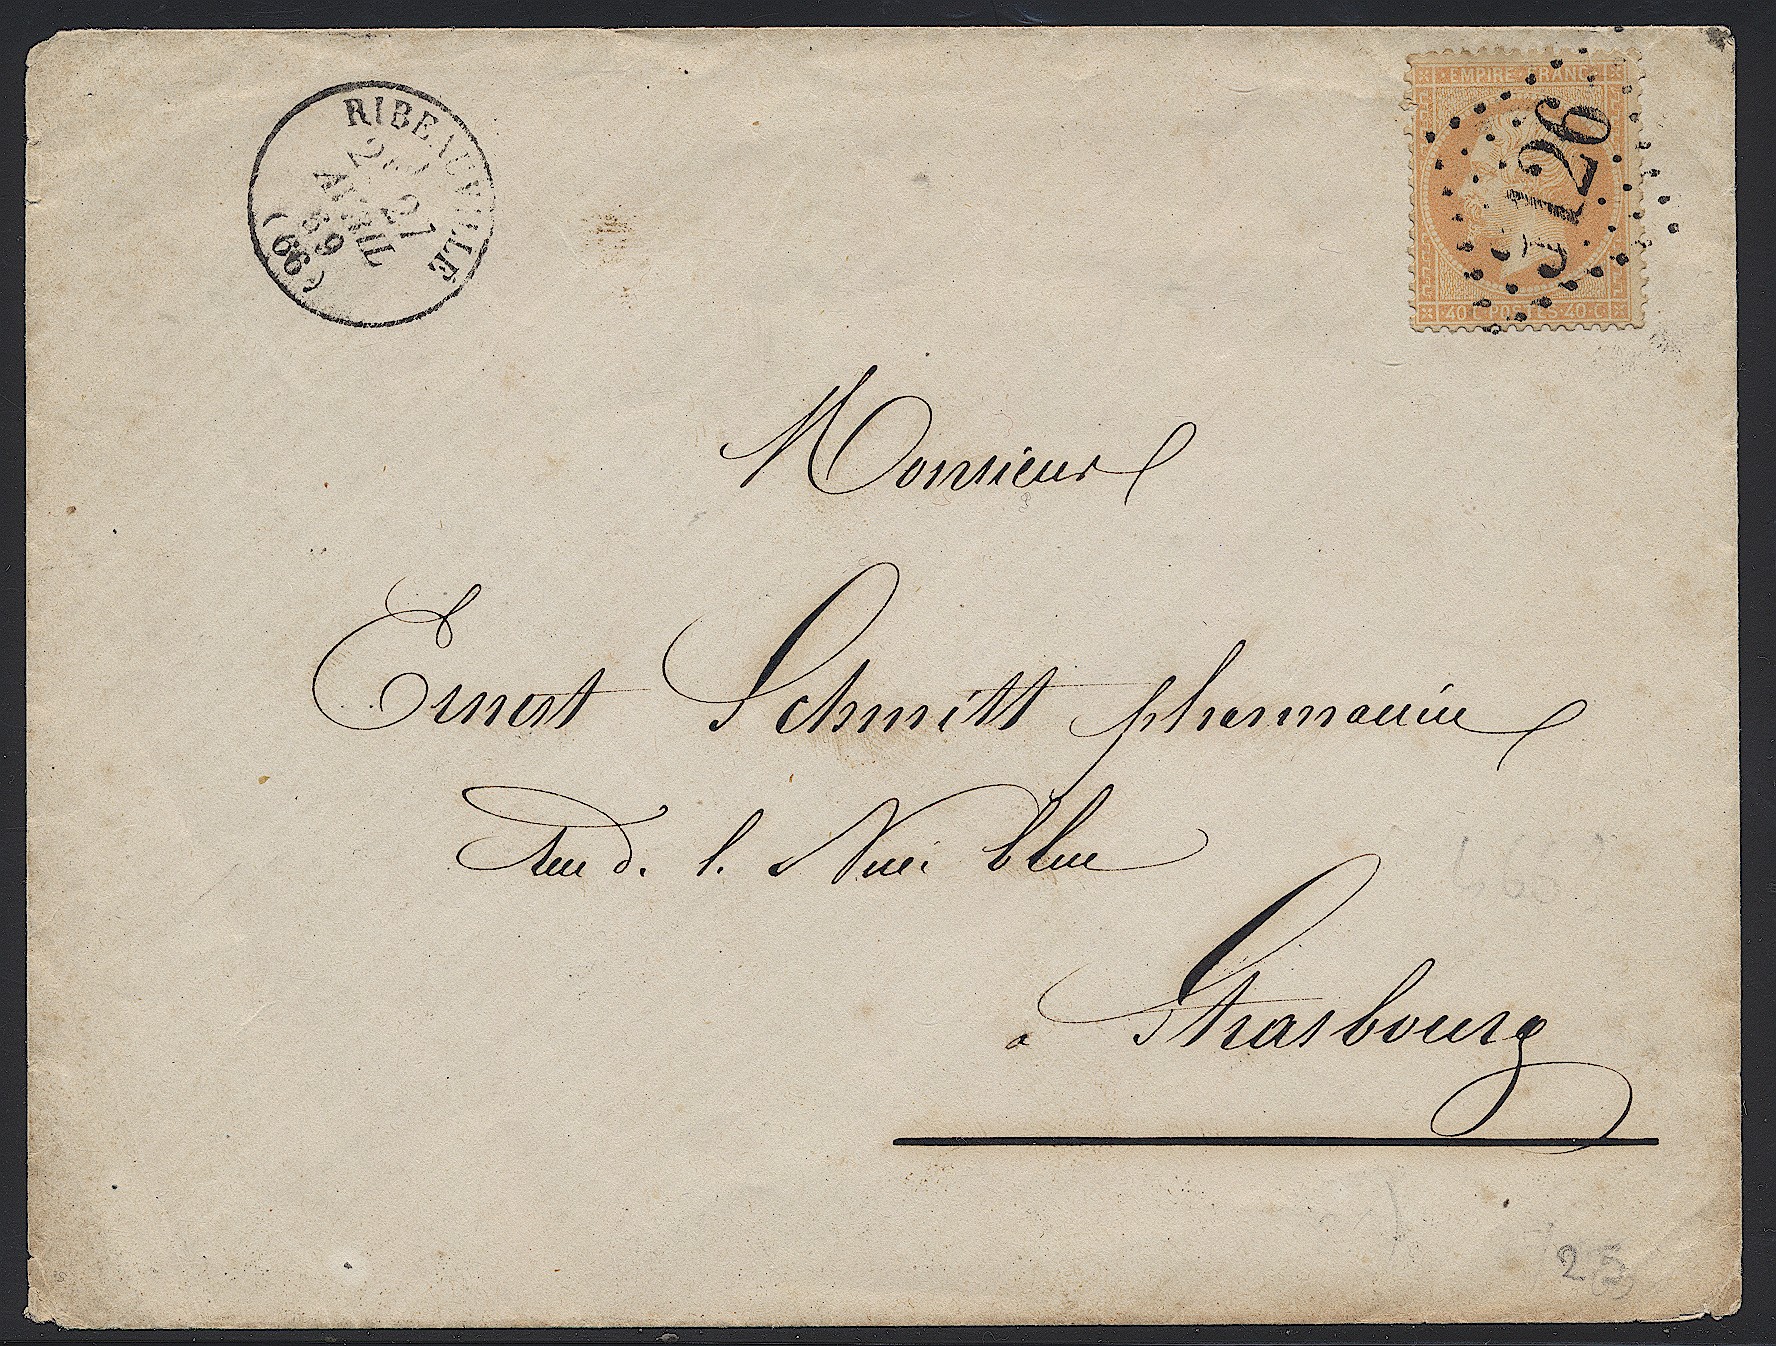 RIBEAUVILLE
2E
27
AVRIL
69
(66)
EMPIRE FRANC
3126
40 C POSTES 40 C
Monsieur
Ernest Schmitt pharmacien
rue d. l. Nuée bleue
à Strasbourg
25